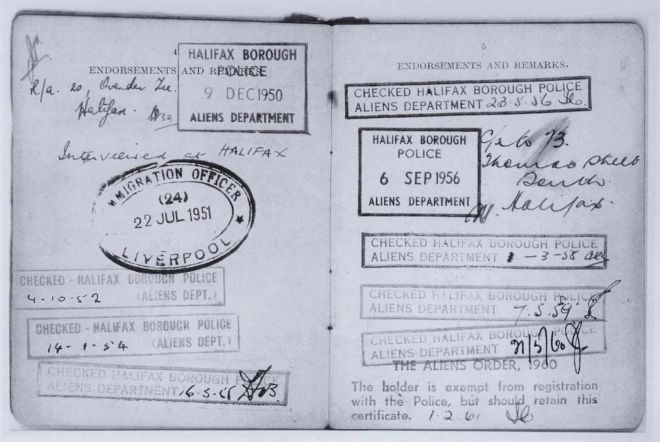 4
ENDORSEMENTS AND REMARKS.
HALIFAX BOROUGH
POLICE
9 DEC 1950
ALIENS DEPARTMENT
R/a. 20,
Halifax.
Interviewed at HALIFAX
IMMIGRATION OFFICER
(24)
22 JUL 1951
LIVERPOOL
CHECKED - HALIFAX BOROUGH POLICE
4-10-52 (ALIENS DEPT.)
CHECKED - HALIFAX BOROUGH POLICE
14-1-54 (ALIENS DEPT.)
CHECKED HALIFAX BOROUGH POLICE
ALIENS DEPARTMENT 16.5.55
5
ENDORSEMENTS AND REMARKS.
CHECKED HALIFAX BOROUGH POLICE
ALIENS DEPARTMENT 23.5.56
HALIFAX BOROUGH
POLICE
6 SEP 1956
ALIENS DEPARTMENT
73.
Thomas Street
South.
Halifax.
CHECKED HALIFAX BOROUGH POLICE
ALIENS DEPARTMENT 1-3-58
CHECKED HALIFAX BOROUGH POLICE
ALIENS DEPARTMENT 7.5.59
CHECKED HALIFAX BOROUGH POLICE
ALIENS DEPARTMENT
THE ALIENS ORDER, 1960
The holder is exempt from registration
with the Police, but should retain this
certificate. 1.2.61